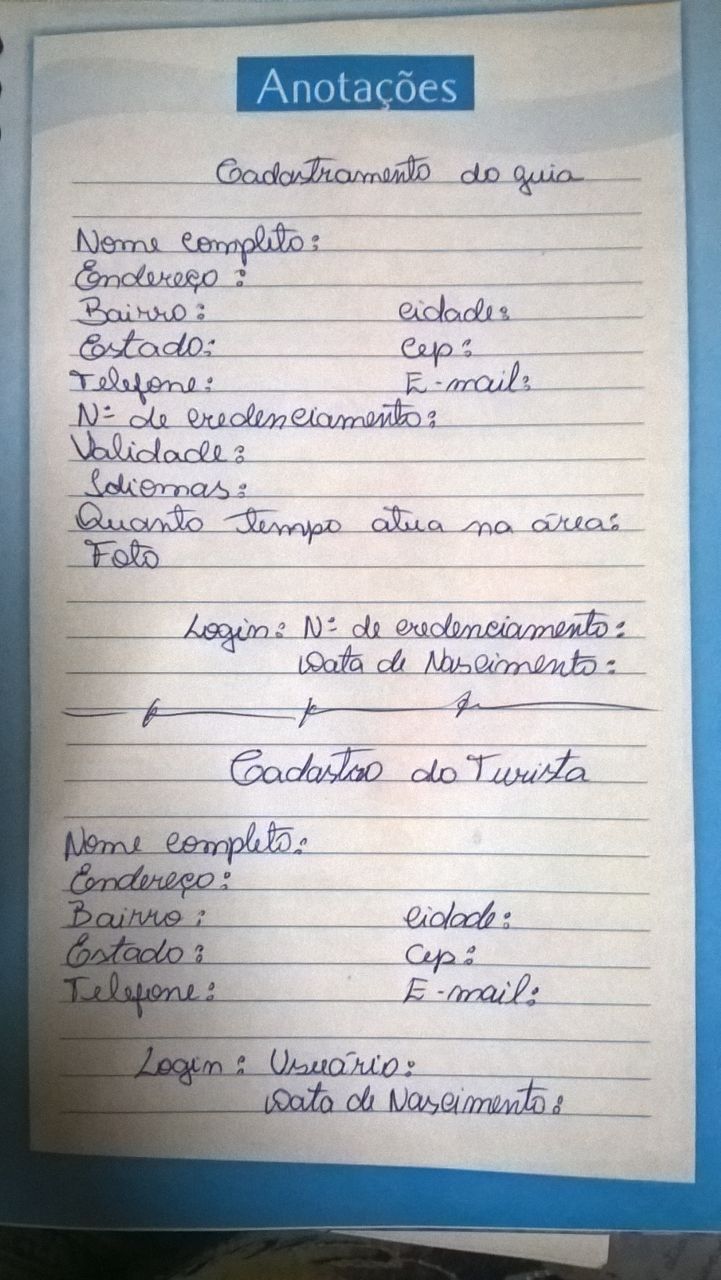 Anotações
Cadastramento do guia
Nome completo:
Endereço:
Bairro: cidade:
Estado: Cep:
Telefone: E-mail:
Nº de credenciamento:
Validade:
Idiomas:
Quanto tempo atua na área:
Foto
Login: Nº de credenciamento:
Data de Nascimento:
Cadastro do Turista
Nome completo:
Endereço:
Bairro: cidade:
Estado: Cep:
Telefone: E-mail:
Login: Usuário:
Data de Nascimento: